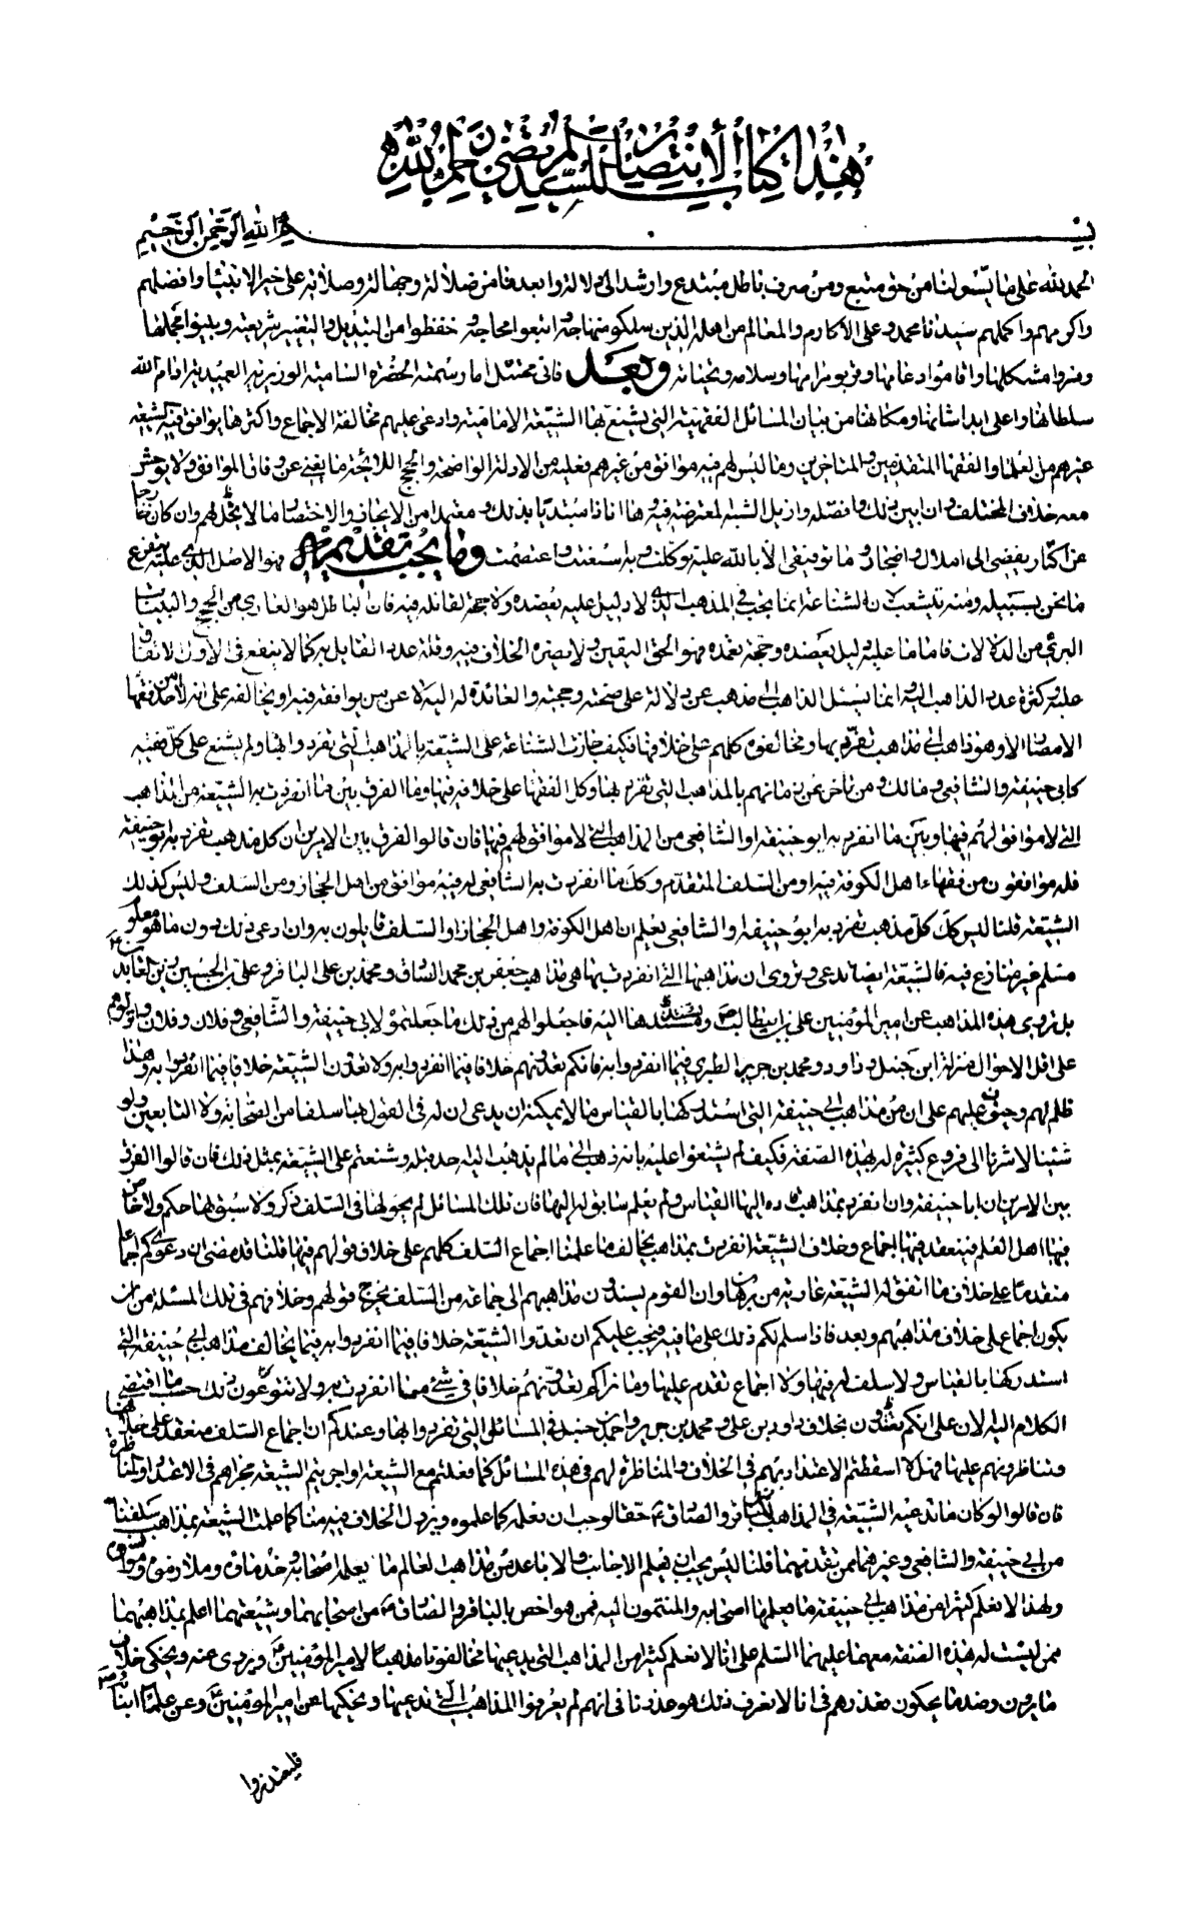 هذا كتاب الانتصار للسيد المرتضى علم الهدى
بسم الله الرحمن الرحيم
الحمد لله على ما يسر لنا من حق متبع ومن صرف باطل مبتدع وارشد الى دلالة وابعد فامن ضلالة وجهالة وصلاته على خير الانبيا وافضلهم
واكرمهم واكملهم سيدنا محمد وعلى الاكارم والمعالم من اهله الذين سلكو منهاجه واتبعوا محاجه وحفظوا من التبديل والتغيير شريعته وبينوا مجملها
مشكلها واقاموا دعائمها وسلامه وتحياته وبعد فاني ممتثل ما رسمته الحضرة السامية الوزيرية العميدية ادام الله
سلطانها واعلى ابدا شانها ومكانها من بيان المسائل الفقهية التي يشنع بها الشيعة الامامية وادعى عليهم مخالفة الاجماع واكثرها يوافق فيه الشيعة
غيرهم من العلما والفقها المتقدمين والمتاخرين وما ليس لهم فيه موافق من غيرهم فعليه من الادلة الواضحة والحجج اللائحة ما يغني عن وفاق الموافق ولا يوحش
معه خلاف المختلف وان ابين ذلك وافصله وازيل الشبه المعترضة فيه وها انا ذا مبتدئا بذلك ومعتمدا من الايجاز والاختصار ما لا يخل بفهم وان كان خارجا
عن اكثار يفضي الى املال واضجار وما توفيقي الا بالله عليه توكلت وبه استعنت واعتصمت ومما يجب تقديمه فهو الاصل الذي عليه يتفرع
ما نحن بسبيله ومنه يتشعب لان الشناعة انما يجب في المذهب الذي لا دليل عليه يعضده ولا حجة لقائله فيه فان الباطل هو العاري من الحجج والبينات
البرئ من الدلالات فاما ما عليه دليل يعضده وحجة تعمده فهو الحق اليقين ولا يضره الخلاف فيه وقلة عدد القايل به كما لا ينفع في الاول الاتفاق
عليه وكثرة عدد الذاهب اليه وانما يسئل الذاهب الى مذهب عن دلالة على صحته وحجته والقائدة له اليه لا عن من يوافقه فيه او يخالفه على انه لا احد من فقها
الامصار الا وهو ذاهب الى مذاهب تفرد بها ومخالفوه كلهم على خلافها فكيف جازت الشناعة على الشيعة بالمذاهب التي تفردوا بها ولم يشنع على كل فقيه
كابي حنيفة والشافعي ومالك ومن تاخر عن زمانهم بالمذاهب التي تفرد بها وكل الفقها على خلافه فيها وما الفرق بين ما انفردت به الشيعة من المذاهب
التي لا موافق لهم فيها وبين ما انفرد به ابو حنيفة او الشافعي من المذاهب التي لا موافق لهم فيها فان قالوا الفرق بين الامرين ان كل مذهب تفرد به ابو حنيفة
فله موافقون من فقهاء اهل الكوفة فيه او من السلف المتقدم وكل ما انفردت به الشافعي له فيه موافق من اهل الحجاز ومن السلف وليس كذلك
الشيعة قلنا ليس كل مذهب تفرد به ابو حنيفة او الشافعي يعلم ان اهل الكوفة واهل الحجاز او السلف قايلون به وان ادعى ذلك بدون ما هو معلوم
مسلم غير منازع فيه فالشيعة ايضا تدعي وتروي ان مذاهبها التي انفردت بها هي مذاهب جعفر بن محمد الصادق ومحمد بن علي الباقر وعلي بن الحسين زين العابدين
بل تروى هذه المذاهب عن امير المؤمنين علي بن ابي طالب وتسندها اليه فاجعلوا لهم من ذلك ما جعلتموه لابي حنيفة والشافعي وفلان وفلان
على اقل الاحوال منزلة ابن حنبل وداود ومحمد بن جرير الطبري فيما انفردوا به فانكم تعدونهم خلافا فيما انفردوا به ولا تعدون الشيعة خلافا فيما انفردوا به وهذا
ظلم لهم وحيف عليهم على ان من مذاهب ابي حنيفة التي استدركها بالقياس ما لا يمكنه ان يدعى ان له في القول بها سلفا من الصحابة ولا التابعين ولو
شئنا لاشرنا الى فروع كثيرة له بهذه الصفة فكيف لم يشنعوا عليه بانه ذهب الى ما لم يذهب اليه احد قبله وشنعتم على الشيعة بمثل ذلك فان قالوا الفرق
بين الامرين ان ابا حنيفة وان انفرد بمذاهب اليها القياس ولم يعلم سابق له اليها فان تلك المسائل لم يجر لها في السلف ذكر ولا سبق لها حكم
فيها اهل العلم فينعقد فيها اجماع وخلاف الشيعة انفردت بمذاهب يخالف ما علمنا اجماع السلف كلهم على خلاف قولهم فيها قلنا قد مضى ان دعوى اجماعكم
متقدما على خلاف ما اتفق له الشيعة عارية من برهان وان القوم يسندون مذاهبهم الى جماعة من السلف يخرج قولهم وخلافهم في تلك المسئلة من ان
يكون اجماع على خلاف مذاهبهم وبعد فاذا سلم لكم ذلك على ما فيه ويجب عليكم ان تعدوا الشيعة خلافا فيما انفردوا به فيما يخالف مذاهب ابي حنيفة التي
استدركها بالقياس ولا سلف له فيها ولا اجماع تقدم عليها وما نراكم تعدونهم خلافا في شئ مما انفردت به ولا تنوعون ذلك حسب ما اقتضى
الكلام اليه الان على انكم تعتدون بخلاف داود بن علي ومحمد بن جرير واحمد بن حنبل في المسائل التي تفردوا بها وعندكم ان اجماع السلف منعقد على خلافها
وتناظرونهم عليها فهلا اسقطتم الاعتداد بهم في الخلاف والمناظرة لهم في هذه المسائل كما فعلتم مع الشيعة او اجريتم الشيعة مجراهم في الاعتداد
فان قالوا لو كان ما تدعيه الشيعة في المذاهب الباقر والصادق حقا لوجب ان نعلمه كما علموه ويزول الخلاف فيه منا كما علمت الشيعة بمذاهب سلفنا
من ابي حنيفة والشافعي وغيرهما ممن تقدمهما قلنا ليس يجب ان يعلم الاجانب والاباعد من مذاهب العالم ما يعلمه اصحابه وخدمانه وملازموه
ولهذا لا نعلم كثيرا من مذاهب ابي حنيفة ما يعلمها اصحابه والمنتمون اليه فمن هو اخص بالباقر والصادق من اصحابهما وشيعتهما اعلم بمذاهبهما
ممن ليست له هذه الصفة معهما عليهما السلم على انا لا نعلم كثيرا من المذاهب التي يدعيها مخالفونا مذهبا لامير المؤمنين ويروى عنه ويحكى خلاف
ما يروون وضد ما يحكون فعذرهم في انا لا نعرف ذلك هو عذرنا في انهم لم يعرفوا المذاهب التي ندعيها ونحكيها عن امير المؤمنين وعن علماء ابنائه
فليعذروا